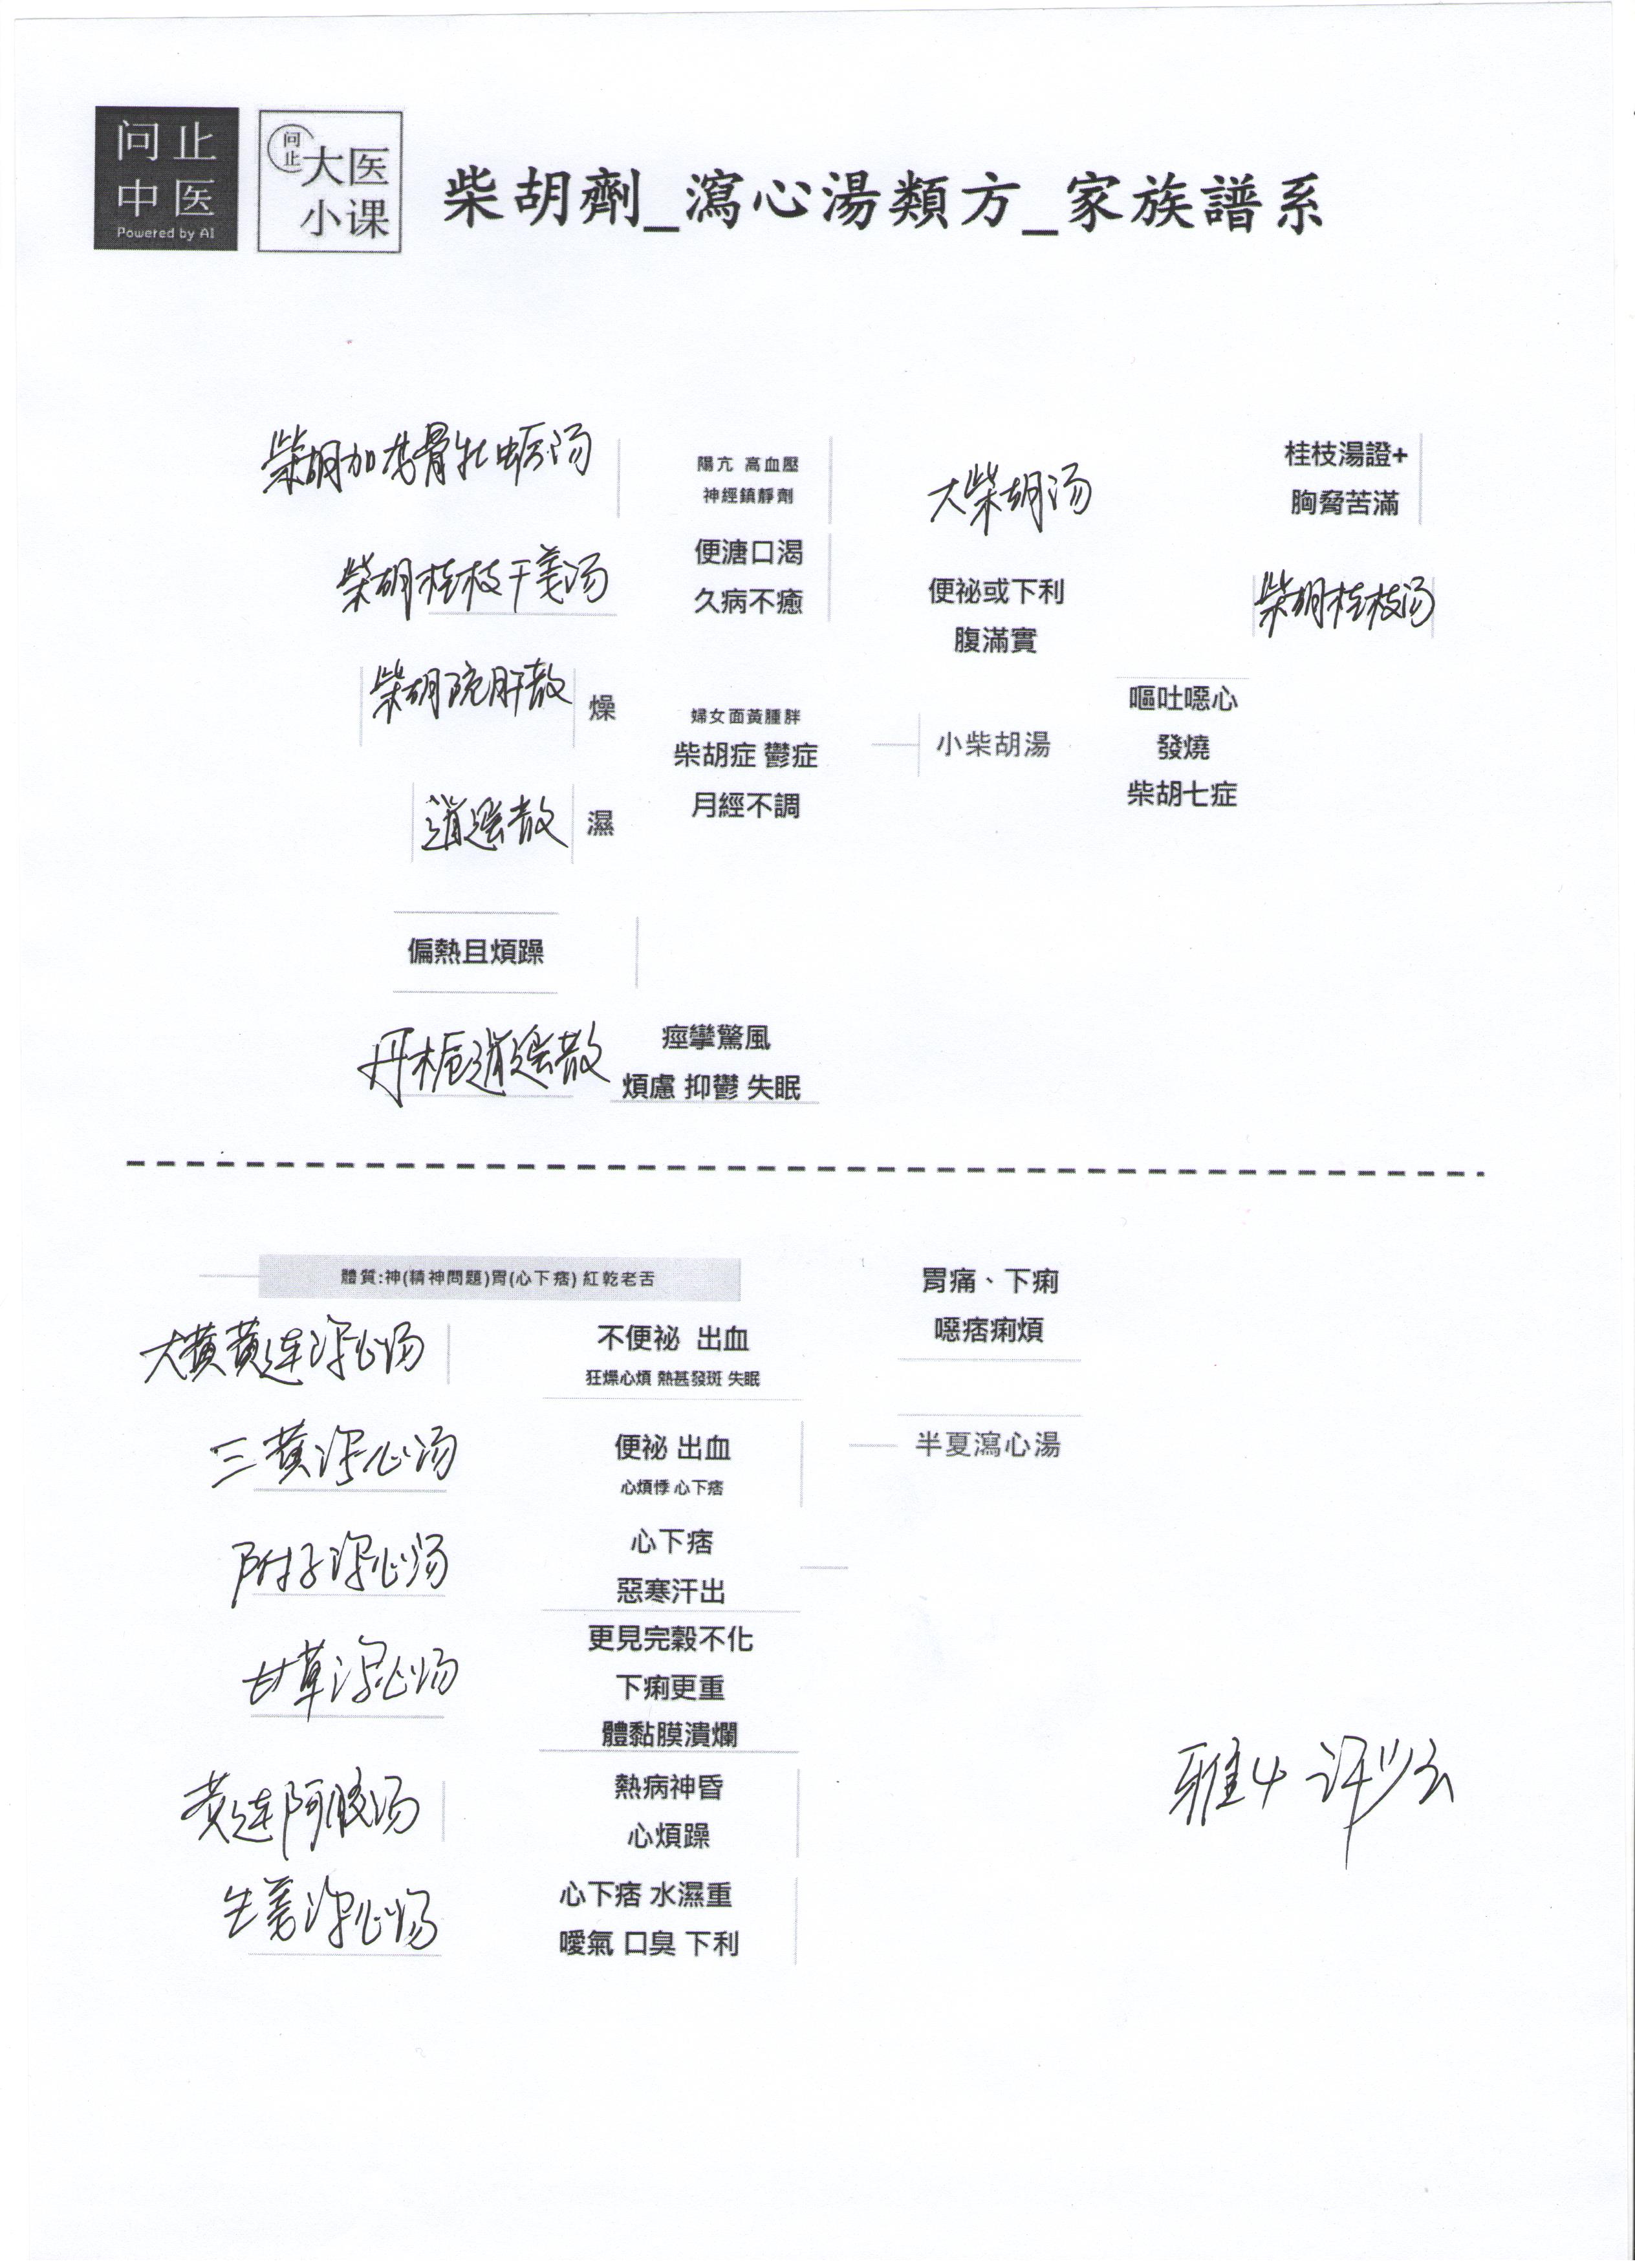 问止
中医
Powered by AI
问止
大医
小课
柴胡劑_瀉心湯類方_家族譜系
柴胡加龙骨牡蛎汤
陽亢 高血壓
神經鎮靜劑
大柴胡汤
桂枝湯證+
胸脅苦滿
柴胡桂枝干姜汤
便溏口渴
久病不癒
便祕或下利
腹滿實
柴胡桂枝汤
柴胡疏肝散
燥
婦女面黃腫胖
柴胡症 鬱症
月經不調
小柴胡湯
嘔吐噁心
發燒
柴胡七症
逍遥散
濕
偏熱且煩躁
丹栀逍遥散
痙攣驚風
煩慮 抑鬱 失眠
體質:神(精神問題)胃(心下痞) 紅乾老舌
胃痛、下痢
噁痞痢煩
大黄黄连泻心汤
不便祕 出血
狂燥心煩 熱甚發斑 失眠
三黄泻心汤
便祕 出血
心煩悸 心下痞
半夏瀉心湯
附子泻心汤
心下痞
惡寒汗出
甘草泻心汤
更見完穀不化
下痢更重
體黏膜潰爛
黄连阿胶汤
熱病神昏
心煩躁
生姜泻心汤
心下痞 水濕重
噯氣 口臭 下利
雅4